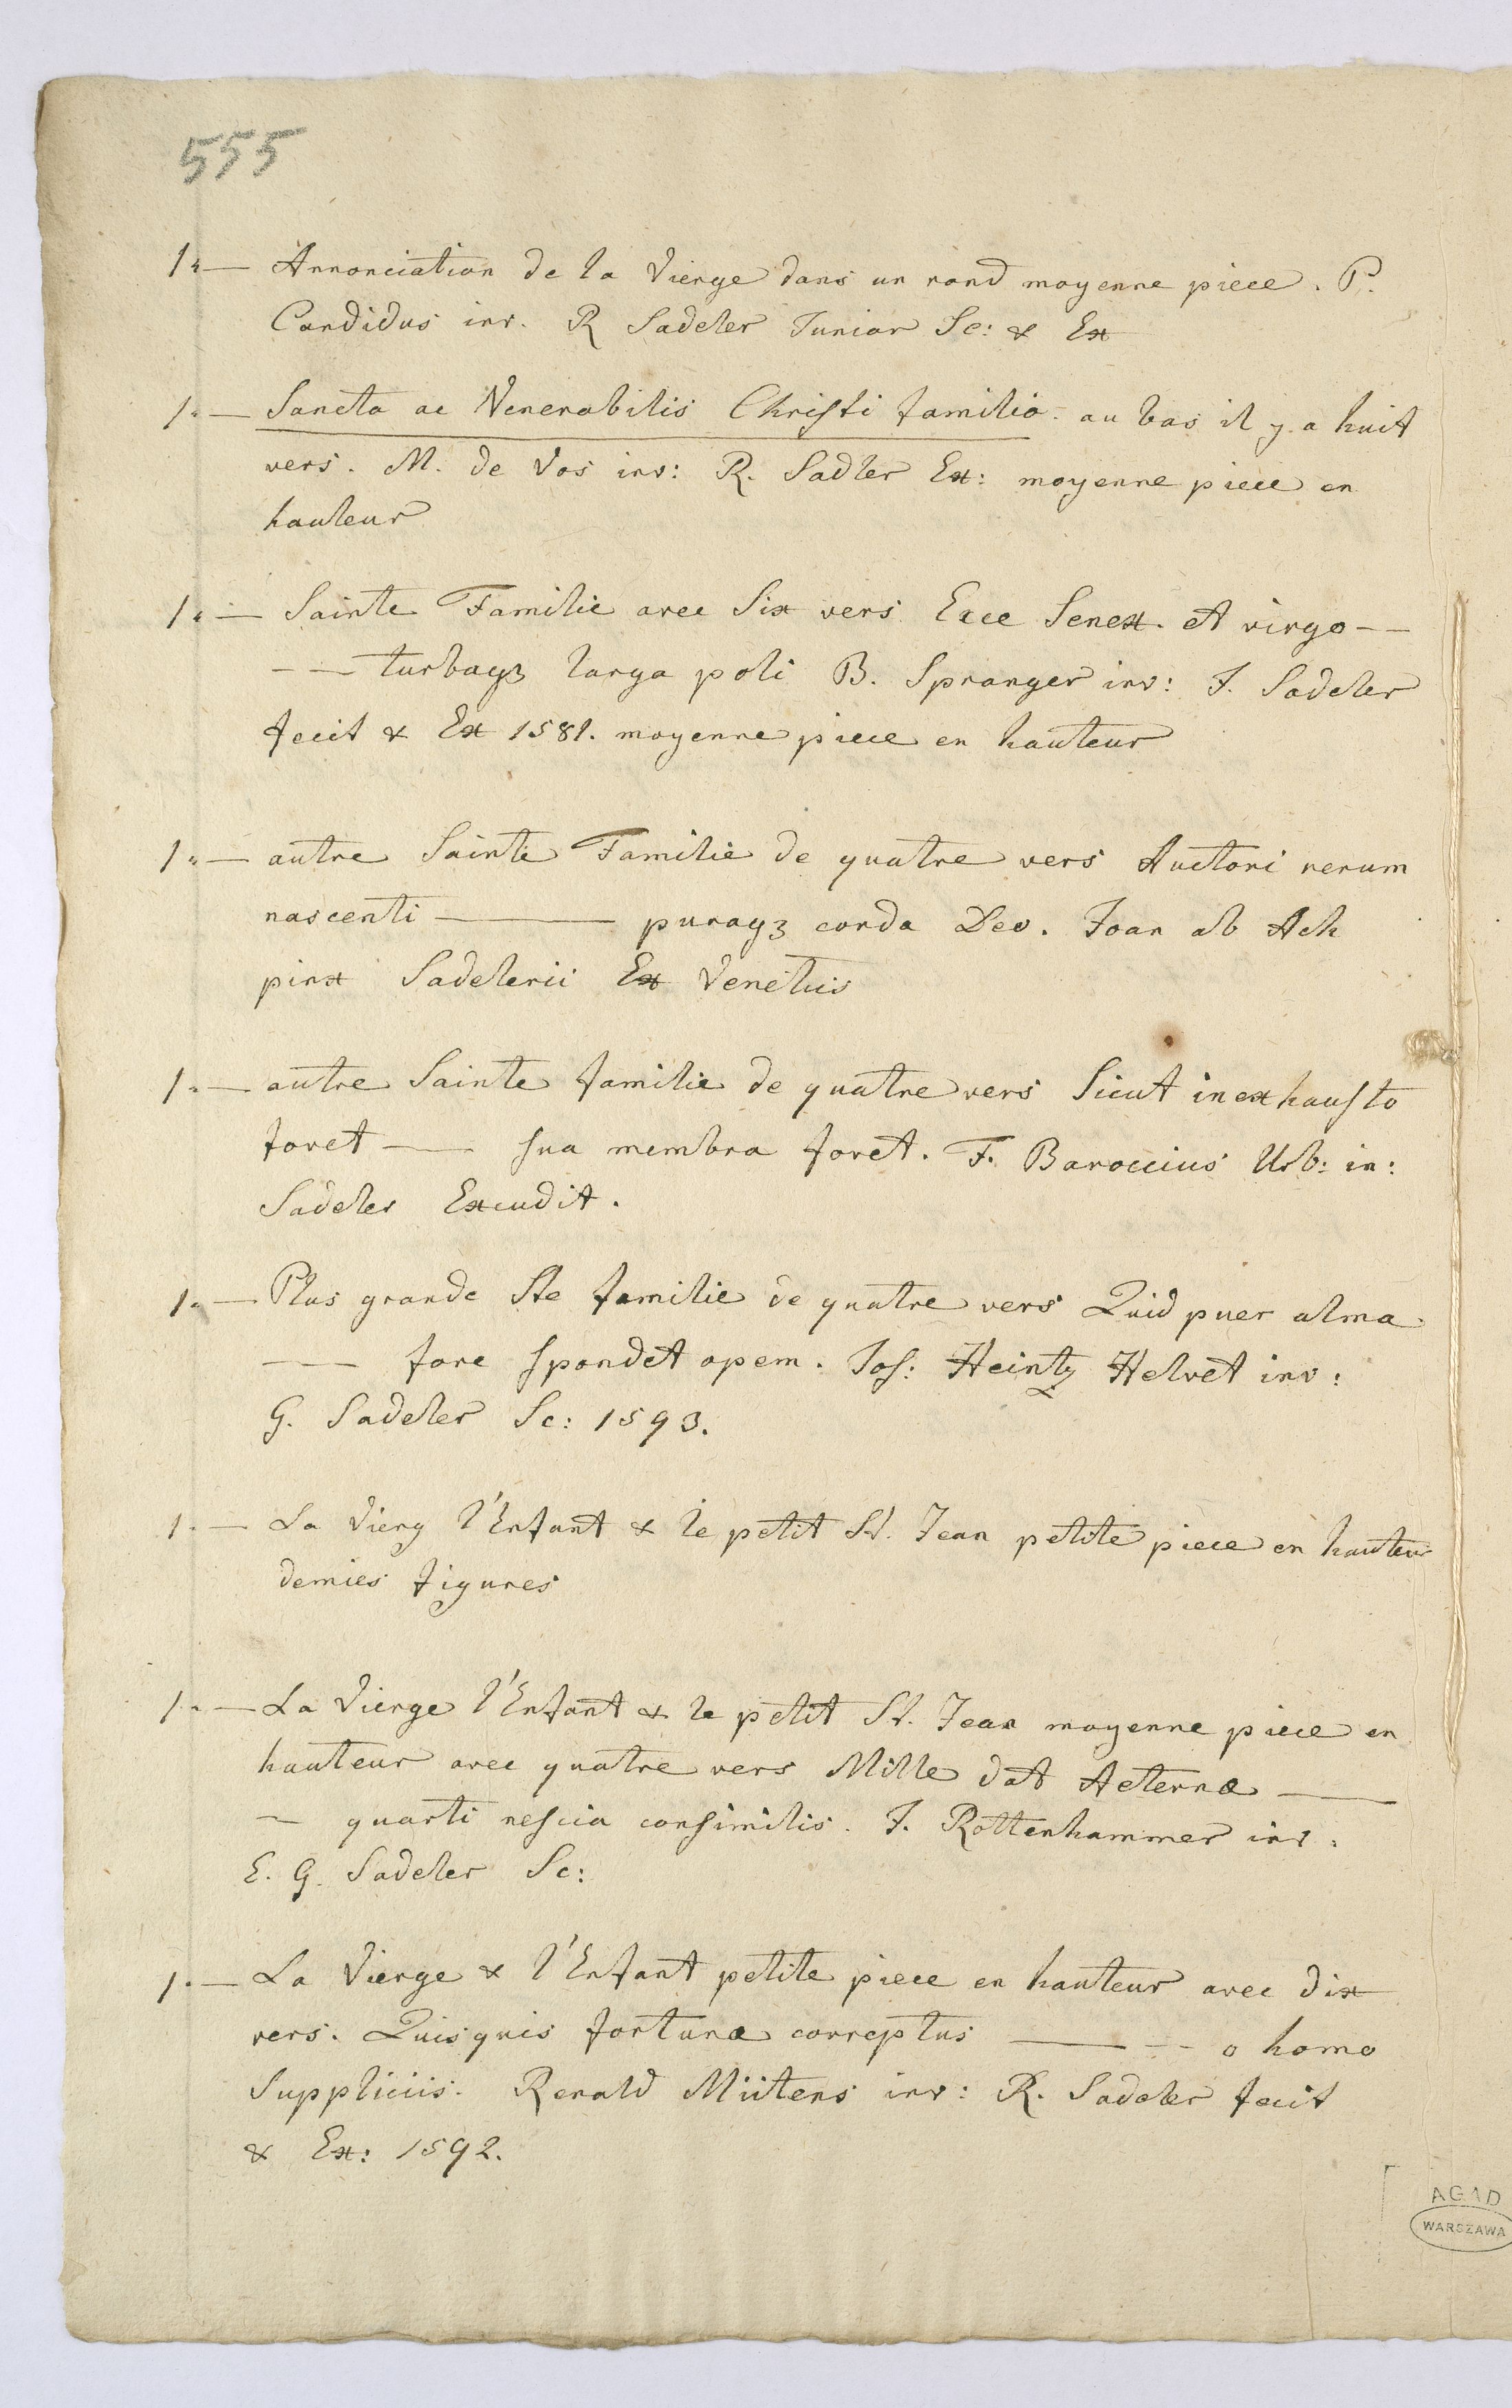 555
1" — Annonciation de la Vierge dans un rond moyenne piece. P.
Candidus inv. R Sadeler Junior Sc: & Ex
1" — Sancta ac Venerabilis Christi familia. au bas il y a huit
vers. M. de Vos inv: R. Sadler Ex: moyenne piece en
hauteur
1" — Sainte Familie avec Six vers Ecce Senex. et virgo — —
— — turbaqз larga poli B. Spranger inv: J. Sadeler
fecit & Ex 1581. moyenne piece en hauteur
1" — autre Sainte Familie de quatre vers Auctori rerum
nascenti — puraqз corda Deo. Joan ab Ach
pinx Sadelerii Ex Venetiis
1" — autre Sainte familie de quatre vers Sicut inexhausto
fovet — sua membra fovet. F. Baroccius Urb: in:
Sadeler Excudit.
1" — Plus grande Ste familie de quatre vers Quid puer alma.
— fore spondet opem. Jos: Heintz Helvet inv:
G. Sadeler Sc: 1593.
1" — La Vierg l'Enfant & le petit St. Jean petite piece en hauteur
demies figures
1" — La Vierge l'Enfant & le petit St. Jean moyenne piece en
hauteur avec quatre vers Mille dat Aeternæ —
— quarti nescia consimilis. J. Rottenhammer inv:
E. G. Sadeler Sc:
1" — La Vierge & l'Enfant petite piece en hauteur avec dix
vers. Quisquis fortunæ correptus — — o homo
Suppliciis. Renald Miitens inv: R. Sadeler fecit
& Ex: 1592.
AGAD
WARSZAWA